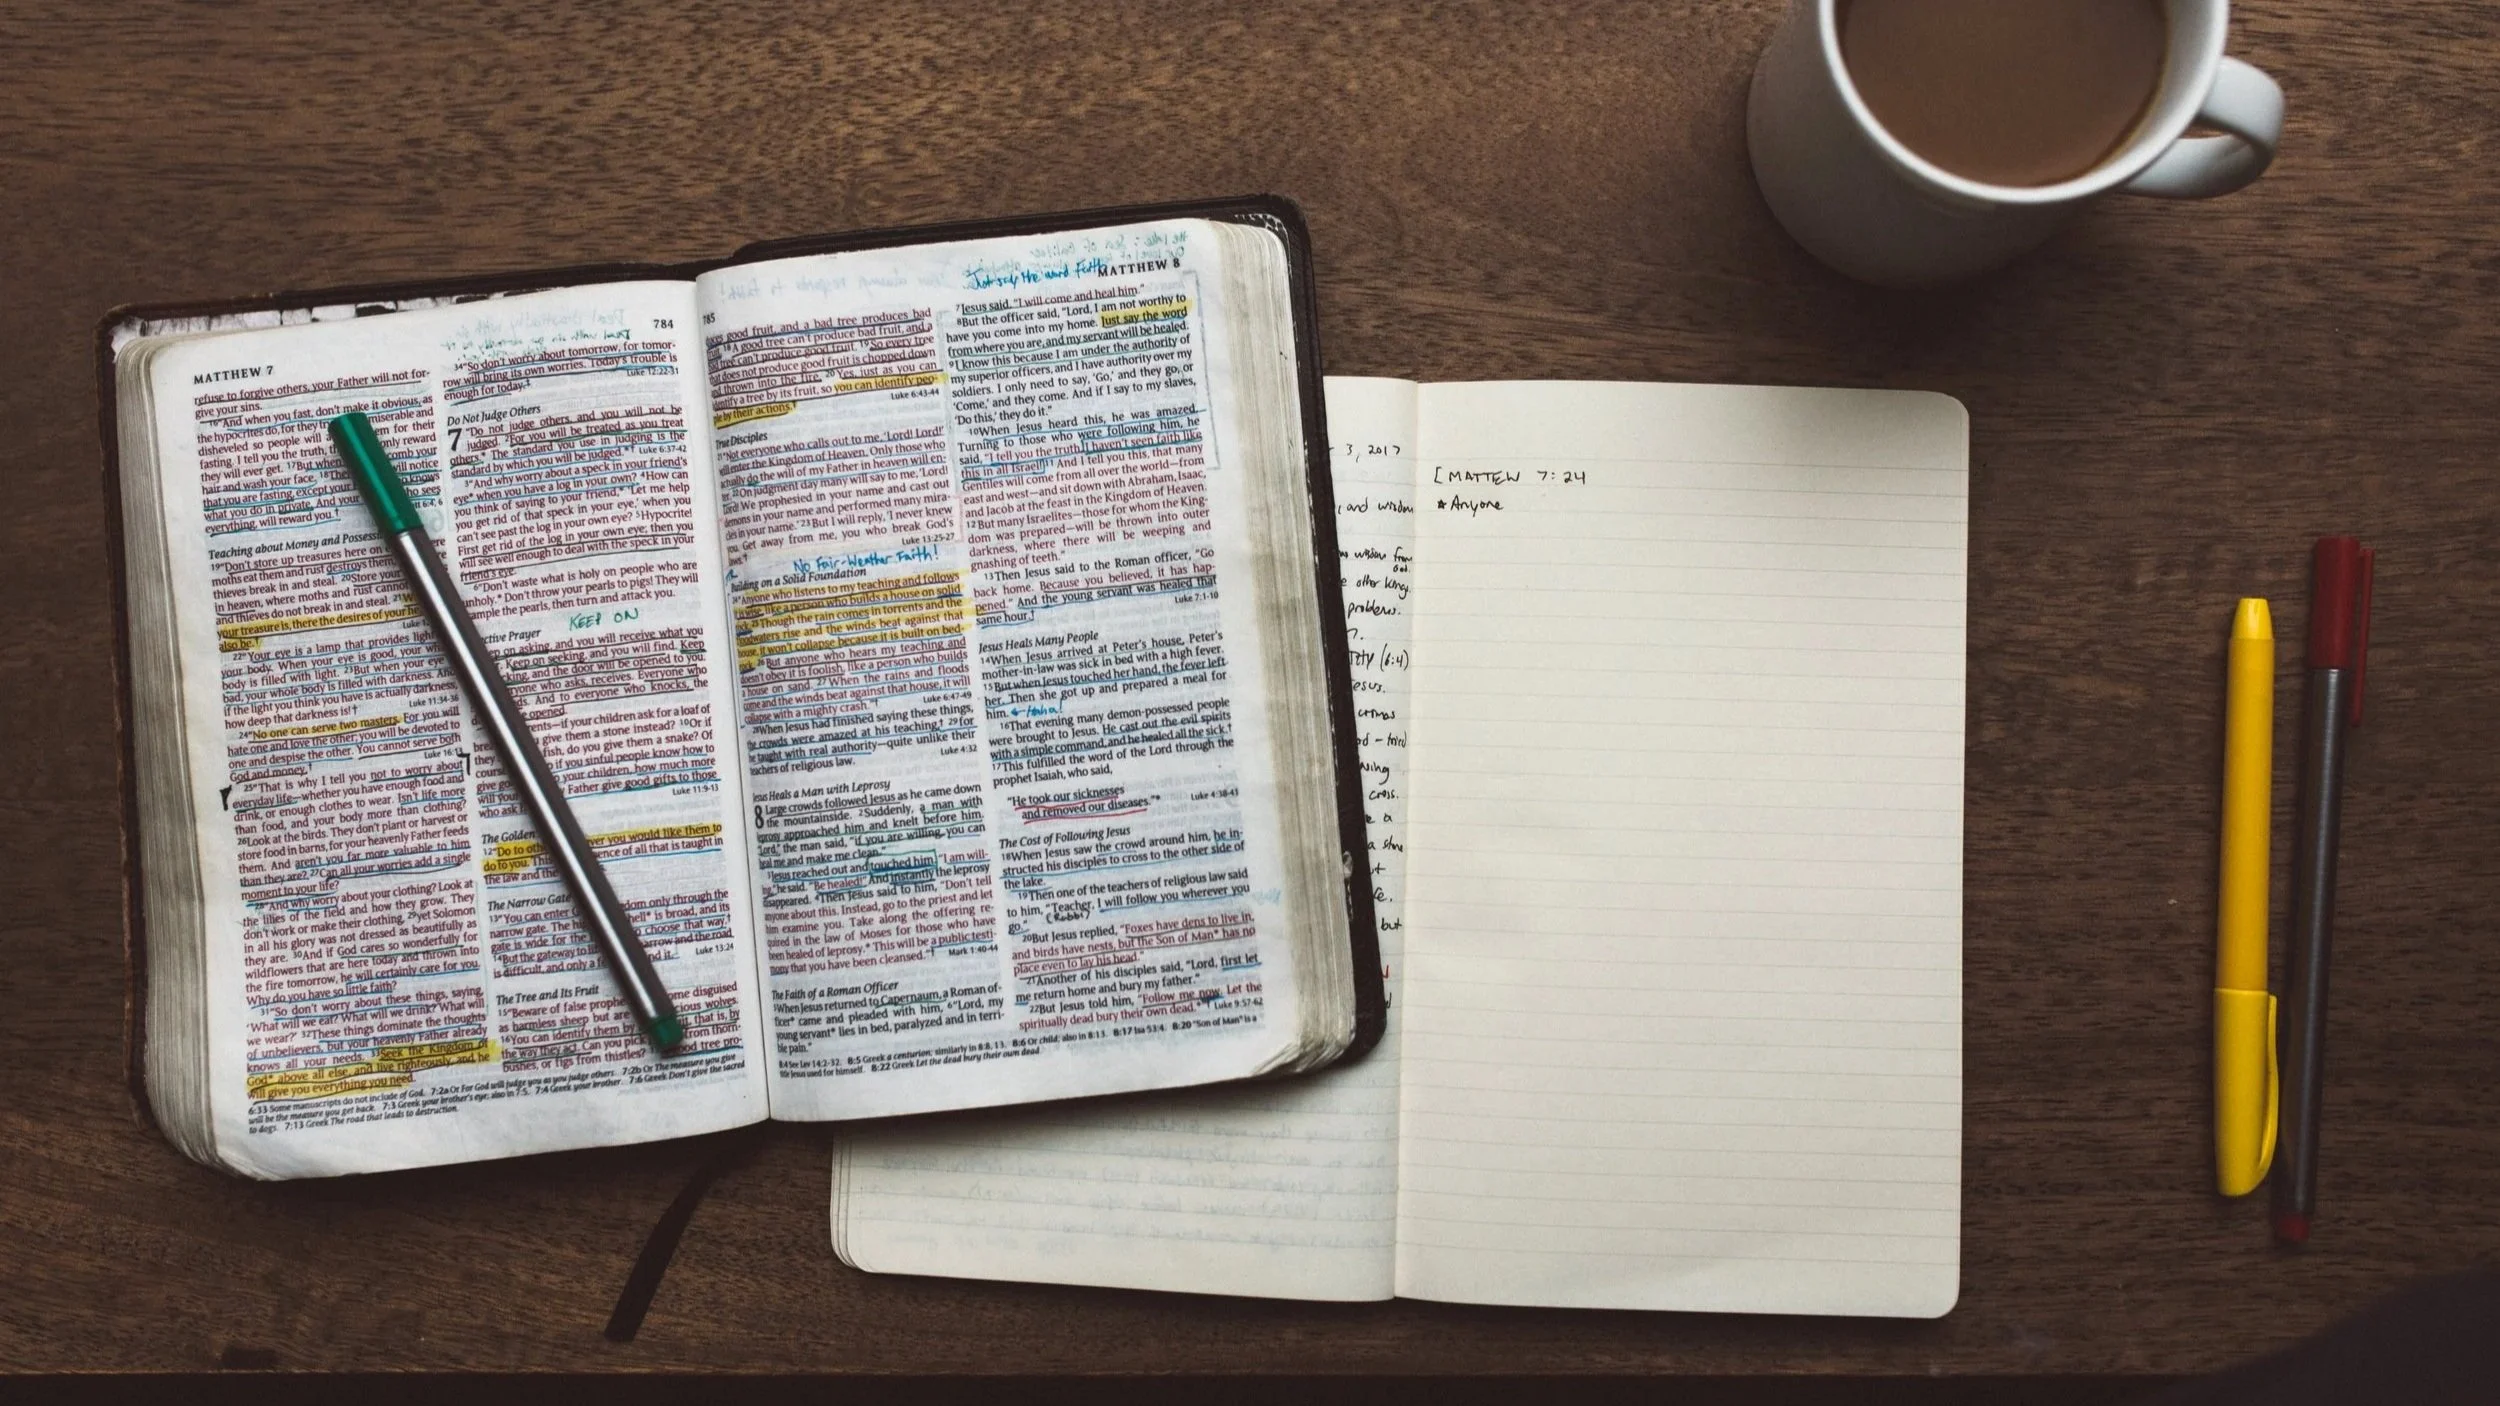 MATTHEW 7
784
refuse to forgive others, your Father will not for-
give your sins.
16“And when you fast, don’t make it obvious, as
the hypocrites do, for they miserable and
disheveled so people will em for their
fasting. I tell you the truth, only reward
they will ever get. 17But when comb your
hair and wash your face. 18 will notice
that you are fasting, except your knows
what you do in private. And your who sees
everything, will reward you.†
6:4, 6
Teaching about Money and Possess
19“Don’t store up treasures here on where
moths eat them and rust destroys them
thieves break in and steal. 20Store your
in heaven, where moths and rust cannot
and thieves do not break in and steal. 21W
your treasure is, there the desires of your he
also be.†
22“Your eye is a lamp that provides light
your body. When your eye is good, your wh
body is filled with light. 23But when your eye
bad, your whole body is filled with darkness. And
if the light you think you have is actually darkness,
how deep that darkness is!†
Luke 11:34-36
24“No one can serve two masters. For you will
hate one and love the other; you will be devoted to
one and despise the other. You cannot serve both
God and money.†
Luke 16:13
25“That is why I tell you not to worry about
everyday life—whether you have enough food and
drink, or enough clothes to wear. Isn’t life more
than food, and your body more than clothing?
26Look at the birds. They don’t plant or harvest or
store food in barns, for your heavenly Father feeds
them. And aren’t you far more valuable to him
than they are? 27Can all your worries add a single
moment to your life?
28“And why worry about your clothing? Look at
the lilies of the field and how they grow. They
don’t work or make their clothing, 29yet Solomon
in all his glory was not dressed as beautifully as
they are. 30And if God cares so wonderfully for
wildflowers that are here today and thrown into
the fire tomorrow, he will certainly care for you.
Why do you have so little faith?
31“So don’t worry about these things, saying,
‘What will we eat? What will we drink? What will
we wear?’ 32These things dominate the thoughts
of unbelievers, but your heavenly Father already
knows all your needs. 33Seek the Kingdom of
God* above all else, and live righteously, and he
will give you everything you need.
34“So don’t worry about tomorrow, for tomor-
row will bring its own worries. Today’s trouble is
enough for today.†
Luke 12:22-31
Do Not Judge Others
7 “Do not judge others, and you will not be
judged. 2For you will be treated as you treat
others.* The standard you use in judging is the
standard by which you will be judged.*†
Luke 6:37-42
3“And why worry about a speck in your friend’s
eye* when you have a log in your own? 4How can
you think of saying to your friend,* ‘Let me help
you get rid of that speck in your eye,’ when you
can’t see past the log in your own eye? 5Hypocrite!
First get rid of the log in your own eye; then you
will see well enough to deal with the speck in your
friend’s eye.
6“Don’t waste what is holy on people who are
unholy.* Don’t throw your pearls to pigs! They will
ample the pearls, then turn and attack you.
KEEP ON
ctive Prayer
ep on asking, and you will receive what you
Keep on seeking, and you will find. Keep
cking, and the door will be opened to you.
ryone who asks, receives. Everyone who
ds. And to everyone who knocks, the
e opened.
ents—if your children ask for a loaf of
you give them a stone instead? 10Or if
fish, do you give them a snake? Of
if you sinful people know how to
your children, how much more
Father give good gifts to those
who ask
Luke 11:9-13
The Golden
12“Do to othe ver you would like them to
do to you. This ence of all that is taught in
the law and the
The Narrow Gate
13“You can enter dom only through the
narrow gate. The hi hell* is broad, and its
gate is wide for the choose that way.†
14But the gateway to li arrow and the road
is difficult, and only a f nd it.
Luke 13:24
The Tree and Its Fruit
15“Beware of false prophe ome disguised
as harmless sheep but are cious wolves.
16You can identify them by t, that is, by
the way they act. Can you pick from thorn-
bushes, or figs from thistles? good tree pro-
6:33 Some manuscripts do not include of God. 7:2a Or For God will judge you as you judge others. 7:2b Or The measure you give
will be the measure you get back. 7:3 Greek your brother’s eye; also in 7:5. 7:4 Greek your brother. 7:6 Greek Don’t give the sacred
to dogs. 7:13 Greek The road that leads to destruction.
785
MATTHEW 8
Just say the word Faith
uces good fruit, and a bad tree produces bad
fruit. 18A good tree can’t produce bad fruit, and a
bad tree can’t produce good fruit. 19So every tree
that does not produce good fruit is chopped down
and thrown into the fire. 20Yes, just as you can
identify a tree by its fruit, so you can identify peo-
ple by their actions.†
Luke 6:43-44
True Disciples
21“Not everyone who calls out to me, ‘Lord! Lord!’
will enter the Kingdom of Heaven. Only those who
actually do the will of my Father in heaven will en-
ter. 22On judgment day many will say to me, ‘Lord!
Lord! We prophesied in your name and cast out
demons in your name and performed many mira-
cles in your name.’ 23But I will reply, ‘I never knew
you. Get away from me, you who break God’s
laws.’†
Luke 13:25-27
No Fair-Weather Faith!
Building on a Solid Foundation
24“Anyone who listens to my teaching and follows
it is wise, like a person who builds a house on solid
rock. 25Though the rain comes in torrents and the
floodwaters rise and the winds beat against that
house, it won’t collapse because it is built on bed-
rock. 26But anyone who hears my teaching and
doesn’t obey it is foolish, like a person who builds
a house on sand. 27When the rains and floods
come and the winds beat against that house, it will
collapse with a mighty crash.”†
Luke 6:47-49
28When Jesus had finished saying these things,
the crowds were amazed at his teaching,† 29for
he taught with real authority—quite unlike their
teachers of religious law.
Luke 4:32
Jesus Heals a Man with Leprosy
8 Large crowds followed Jesus as he came down
the mountainside. 2Suddenly, a man with
leprosy approached him and knelt before him.
“Lord,” the man said, “if you are willing, you can
heal me and make me clean.”
3Jesus reached out and touched him. “I am will-
ing,” he said. “Be healed!” And instantly the leprosy
disappeared. 4Then Jesus said to him, “Don’t tell
anyone about this. Instead, go to the priest and let
him examine you. Take along the offering re-
quired in the law of Moses for those who have
been healed of leprosy.* This will be a public testi-
mony that you have been cleansed.”†
Mark 1:40-44
The Faith of a Roman Officer
5When Jesus returned to Capernaum, a Roman of-
ficer* came and pleaded with him, 6“Lord, my
young servant* lies in bed, paralyzed and in terri-
ble pain.”
7Jesus said, “I will come and heal him.”
8But the officer said, “Lord, I am not worthy to
have you come into my home. Just say the word
from where you are, and my servant will be healed.
9I know this because I am under the authority of
my superior officers, and I have authority over my
soldiers. I only need to say, ‘Go,’ and they go, or
‘Come,’ and they come. And if I say to my slaves,
‘Do this,’ they do it.”
10When Jesus heard this, he was amazed.
Turning to those who were following him, he
said, “I tell you the truth, I haven’t seen faith like
this in all Israel! 11And I tell you this, that many
Gentiles will come from all over the world—from
east and west—and sit down with Abraham, Isaac,
and Jacob at the feast in the Kingdom of Heaven.
12But many Israelites—those for whom the King-
dom was prepared—will be thrown into outer
darkness, where there will be weeping and
gnashing of teeth.”
13Then Jesus said to the Roman officer, “Go
back home. Because you believed, it has hap-
pened.” And the young servant was healed that
same hour.†
Luke 7:1-10
Jesus Heals Many People
14When Jesus arrived at Peter’s house, Peter’s
mother-in-law was sick in bed with a high fever.
15But when Jesus touched her hand, the fever left
her. Then she got up and prepared a meal for
him. ← Haha!
16That evening many demon-possessed people
were brought to Jesus. He cast out the evil spirits
with a simple command, and he healed all the sick.†
17This fulfilled the word of the Lord through the
prophet Isaiah, who said,
“He took our sicknesses
and removed our diseases.”*
Luke 4:38-43
The Cost of Following Jesus
18When Jesus saw the crowd around him, he in-
structed his disciples to cross to the other side of
the lake.
19Then one of the teachers of religious law said
to him, “Teacher, I will follow you wherever you
go.” (Rabbi)
20But Jesus replied, “Foxes have dens to live in,
and birds have nests, but the Son of Man* has no
place even to lay his head.”
21Another of his disciples said, “Lord, first let
me return home and bury my father.”
22But Jesus told him, “Follow me now. Let the
spiritually dead bury their own dead.*”†
Luke 9:57-62
8:4 See Lev 14:2-32. 8:5 Greek a centurion; similarly in 8:8, 13. 8:6 Or child; also in 8:13. 8:17 Isa 53:4. 8:20 “Son of Man” is a
title Jesus used for himself. 8:22 Greek Let the dead bury their own dead.
3, 2017
, and wisdom
wisdom from
God.
other kings
problems.
(6:4)
esus.
cross.
a
a stone
but
[MATTEW 7:24
★ Anyone